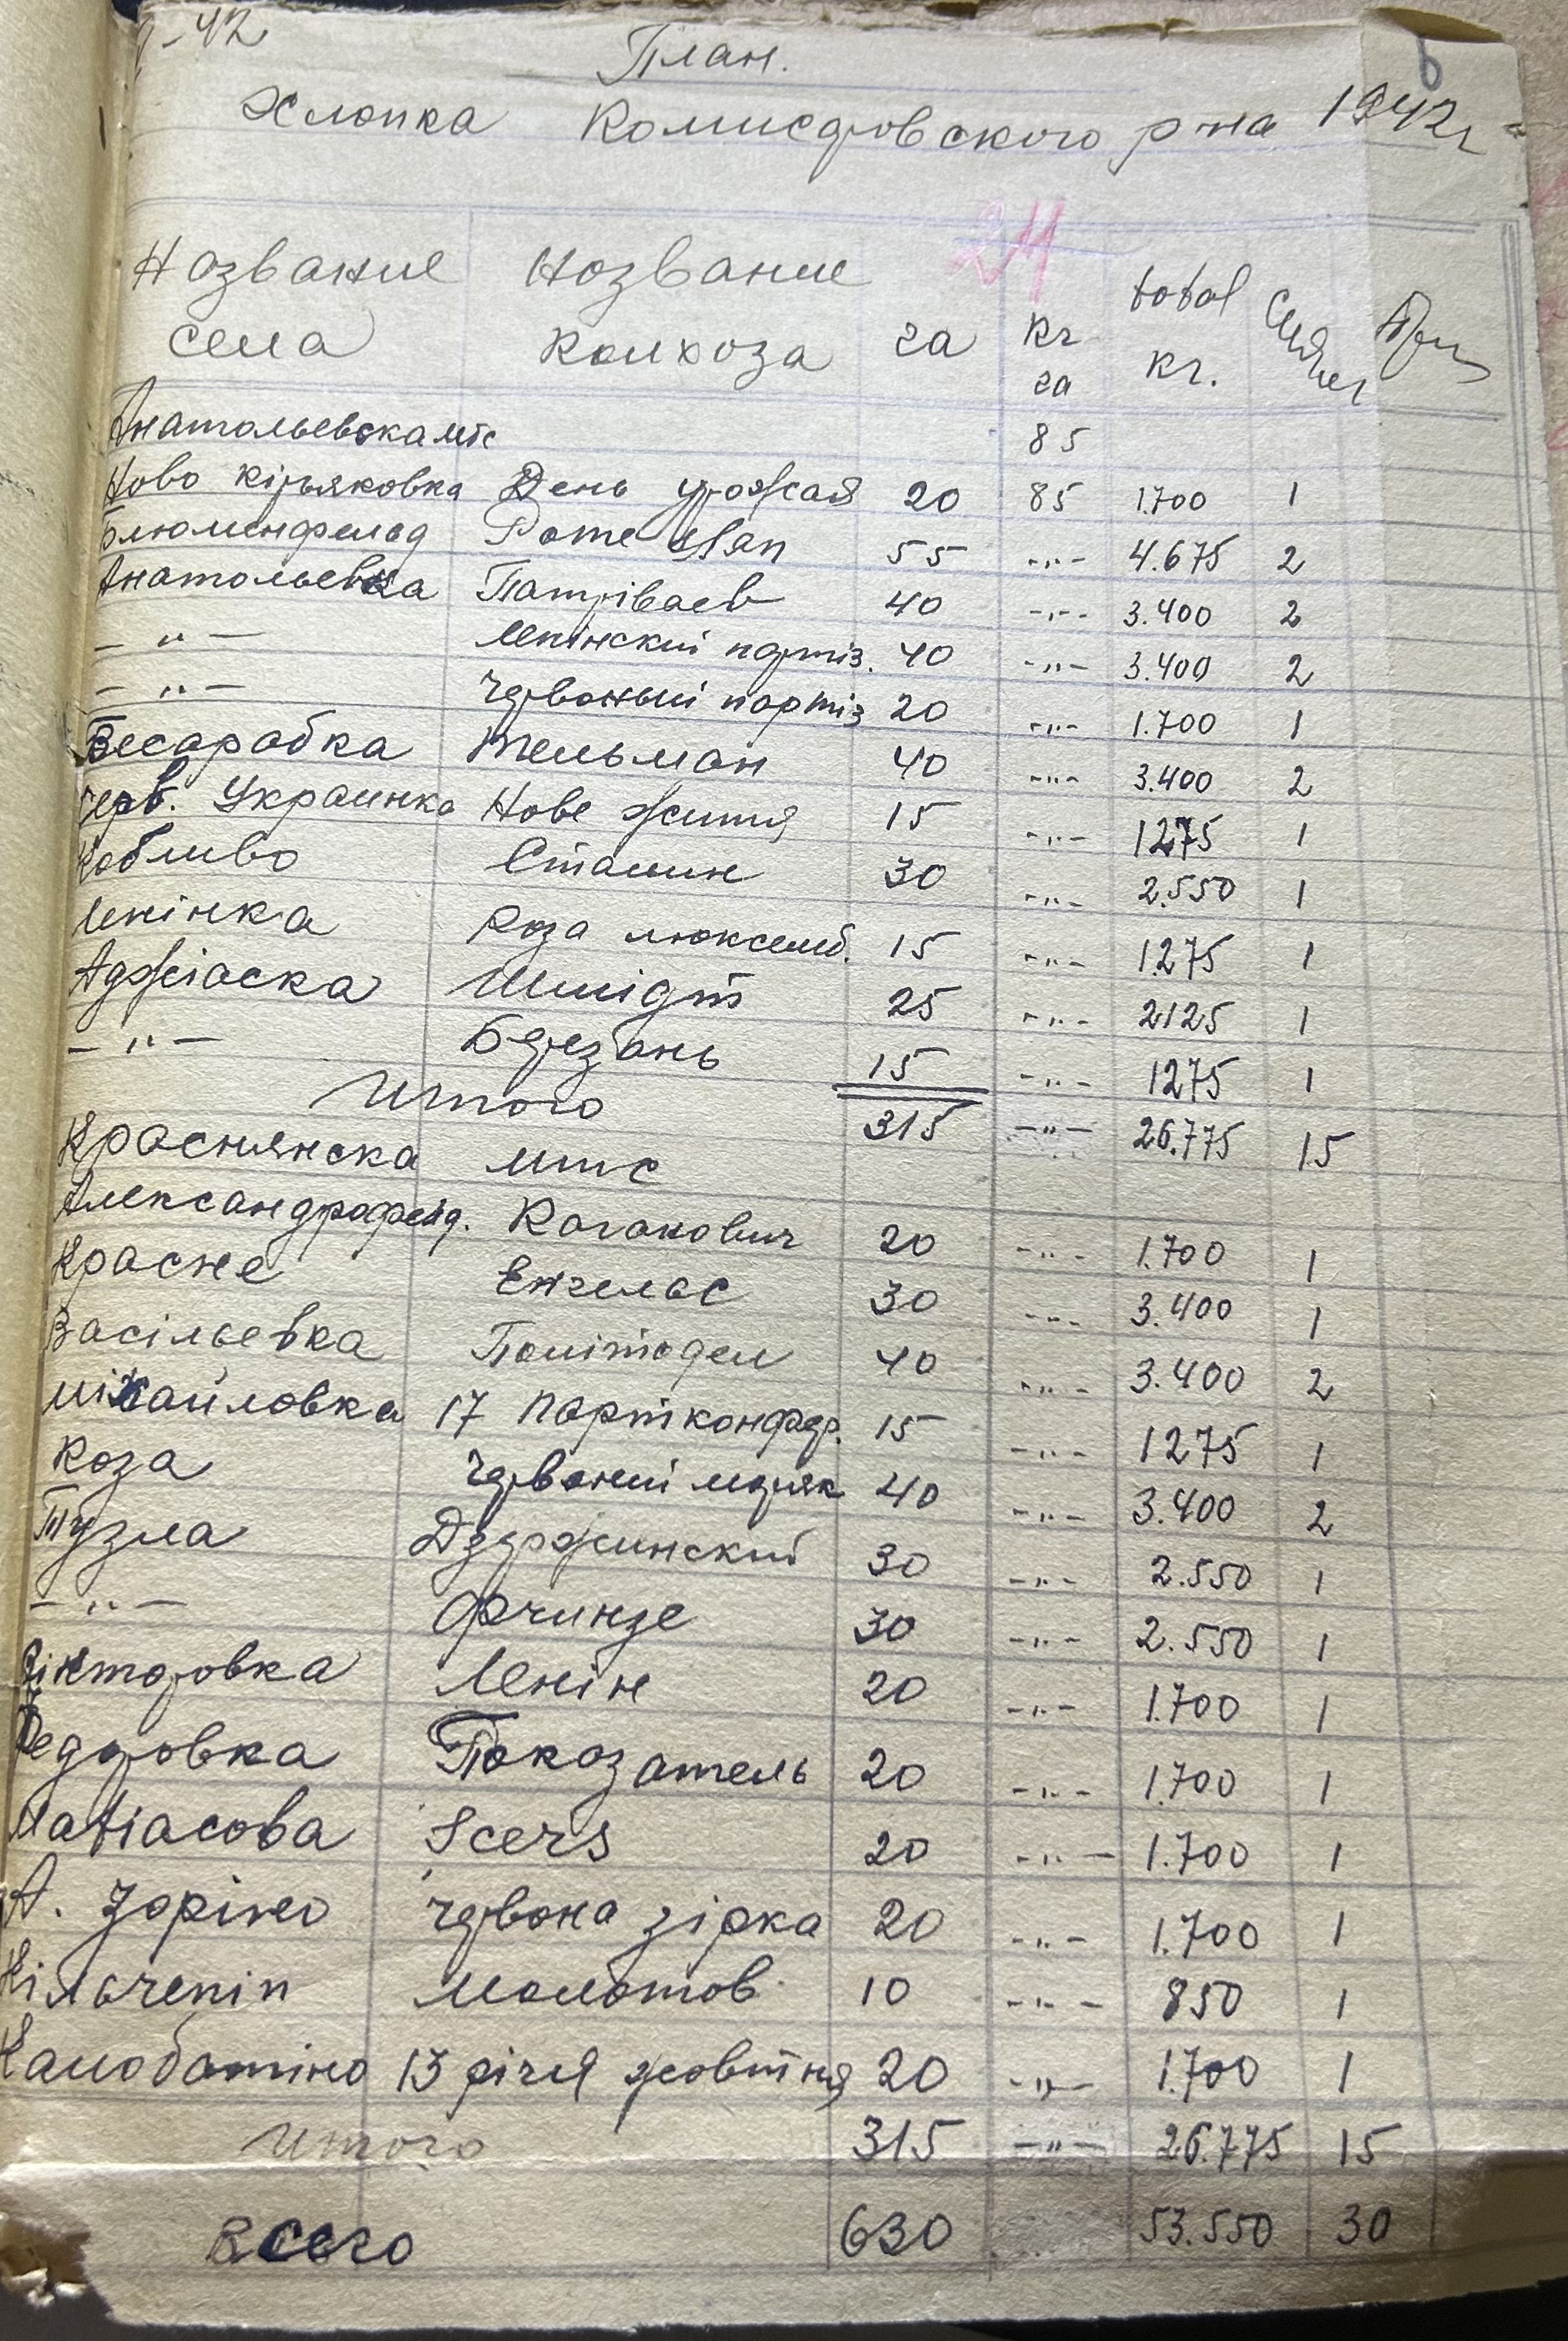 - 42
План.
Хлопка Комисаровского р-на 1942г
24
Название села Название колхоза га кг га total кг.
Анатольевска мтс 85
Ново Кірьяковка День урожая 20 85 1.700 1
Блюменфельд 55 -"- 4.675 2
Анатольевка Патріваев 40 -"- 3.400 2
- " - Ленінский партіз. 40 -"- 3.400 2
- " - Червоный партіз 20 -"- 1.700 1
Бесарабка Тельман 40 -"- 3.400 2
Черв. Украинка Нове життя 15 -"- 1275 1
Коблево Сталин 30 -"- 2.550 1
Ленінка Роза люксемб. 15 -"- 1.275 1
Аджіаска Шмідт 25 -"- 2125 1
- " - Березань 15 -"- 1275 1
Итого 315 -"- 26.775 15
Краснянска мтс
Александрофельд. Каганович 20 -"- 1.700 1
Красне Енгельс 30 -"- 3.400 1
Васільевка Політодел 40 -"- 3.400 2
Міхайловка 17 партконфер. 15 -"- 1275 1
Коза Червоний моряк 40 -"- 3.400 2
Тузла Дзержинский 30 -"- 2.550 1
- " - Фрунзе 30 -"- 2.550 1
Вікторовка Ленін 20 -"- 1.700 1
Федоровка Показатель 20 -"- 1.700 1
Матіасова Scers 20 -"- 1.700 1
А. Зоріно Червона зірка 20 -"- 1.700 1
Молотов 10 -"- 850 1
Калобатіно 13 річя жовтня 20 -"- 1.700 1
Итого 315 -"- 26.775 15
Всего 630 53.550 30